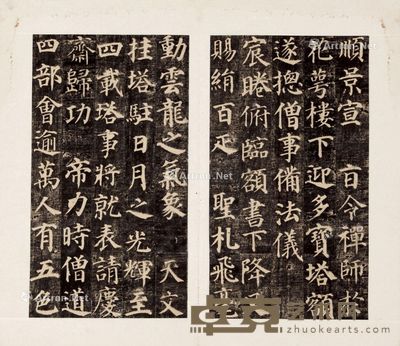 順景宣 旨令禪師於
花萼樓下迎多寶塔額
遂揔僧事備法儀
宸睠俯臨額書下降又
賜絹百疋 聖札飛毫
動雲龍之氣象 天文
挂塔駐日月之光輝至
四載塔事將就表請慶
齋歸功 帝力時僧道
四部會逾萬人有五色
Artron.Net
zhuokearts.com